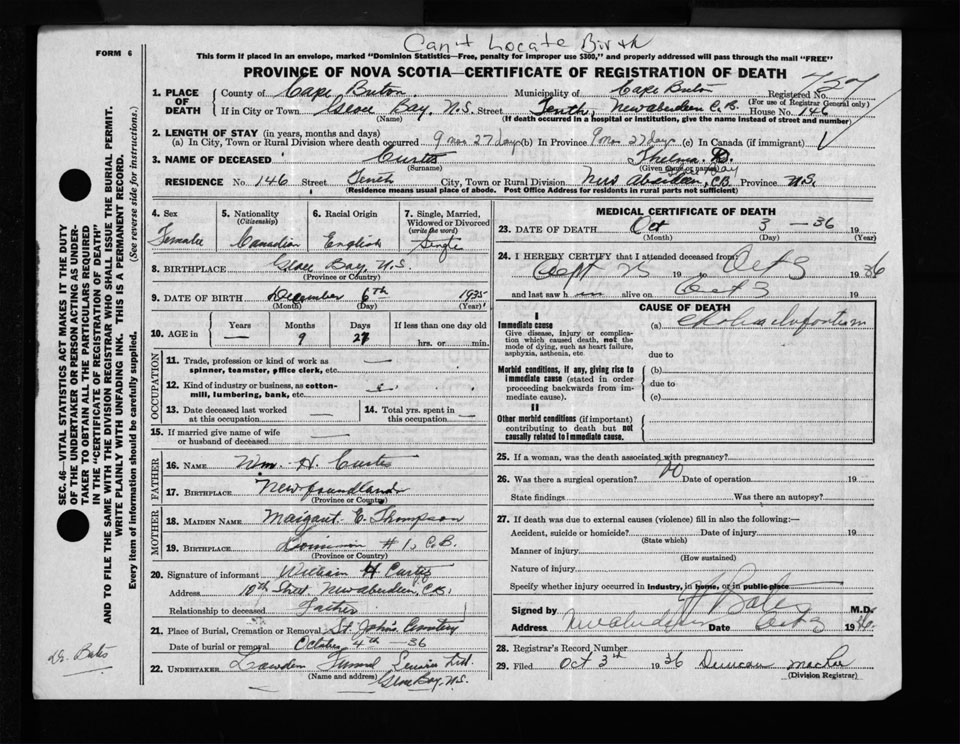 Can't Locate Birth
FORM 6
This form if placed in an envelope, marked "Dominion Statistics—Free, penalty for improper use $300," and properly addressed will pass through the mail "FREE"
PROVINCE OF NOVA SCOTIA—CERTIFICATE OF REGISTRATION OF DEATH
1. PLACE OF DEATH
County of Cape Breton Municipality of Cape Breton Registered No.
(For use of Registrar General only)
If in City or Town Glace Bay, N.S. Street Tenth, New Aberdeen C.B. House No. 146
(Name) (If death occurred in a hospital or institution, give the name instead of street and number)
2. LENGTH OF STAY (in years, months and days)
(a) In City, Town or Rural Division where death occurred 9 mos 27 days (b) In Province 9 mos 27 days (c) In Canada (if immigrant)
3. NAME OF DECEASED Curtis Thelma
(Surname) (Given name or names)
RESIDENCE No. 146 Street Tenth City, Town or Rural Division New Aberdeen, C.B. Province N.S.
(Residence means usual place of abode. Post Office Address for residents in rural parts not sufficient)
4. Sex
Female
5. Nationality
(Citizenship)
Canadian
6. Racial Origin
English
7. Single, Married, Widowed or Divorced
(write the word)
Single
8. BIRTHPLACE Glace Bay, N.S.
(Province or Country)
9. DATE OF BIRTH December 6th 1935
(Month) (Day) (Year)
10. AGE in Years — Months 9 Days 27 If less than one day old
hrs. or min.
OCCUPATION
11. Trade, profession or kind of work as —
spinner, teamster, office clerk, etc.
12. Kind of industry or business, as cotton-
mill, lumbering, bank, etc.
13. Date deceased last worked at this occupation —
14. Total yrs. spent in this occupation —
15. If married give name of wife or husband of deceased —
FATHER
16. NAME Wm. H. Curtis
17. BIRTHPLACE Newfoundland
(Province or Country)
MOTHER
18. MAIDEN NAME Margaret E. Thompson
19. BIRTHPLACE Dominion #1, C.B.
(Province or Country)
20. Signature of informant William H Curtis
Address 10th Street New Aberdeen, C.B.
Relationship to deceased Father
21. Place of Burial, Cremation or Removal St. John's Cemetery
Date of burial or removal October 4th 36
22. UNDERTAKER Funeral Service Ltd.
(Name and address)
Glace Bay, N.S.
MEDICAL CERTIFICATE OF DEATH
23. DATE OF DEATH Oct 3 - 36 19
(Month) (Day) (Year)
24. I HEREBY CERTIFY that I attended deceased from:
Sept 25 19 to Oct 3 1936
and last saw h alive on Oct 3 19
CAUSE OF DEATH
I
Immediate cause
Give disease, injury or complication which caused death, not the mode of dying, such as heart failure, asphyxia, asthenia, etc.
(a) Cholera Infantum
due to
Morbid conditions, if any, giving rise to immediate cause (stated in order proceeding backwards from immediate cause).
(b)
due to
(c)
II
Other morbid conditions (if important) contributing to death but not causally related to immediate cause.
25. If a woman, was the death associated with pregnancy?
26. Was there a surgical operation? no Date of operation 19
State findings Was there an autopsy?
27. If death was due to external causes (violence) fill in also the following:—
Accident, suicide or homicide? Date of injury 19
(State which)
Manner of injury
(How sustained)
Nature of injury
Specify whether injury occurred in industry, in home, or in public place
Signed by Bates M.D.
Address New Aberdeen Date Oct 3 1936.
28. Registrar's Record Number
29. Filed Oct 3rd 1936 Duncan
(Division Registrar)
SEC. 46—VITAL STATISTICS ACT MAKES IT THE DUTY
OF THE UNDERTAKER OR PERSON ACTING AS UNDER-
TAKER TO OBTAIN ALL THE PARTICULARS REQUIRED
IN THE "CERTIFICATE OF REGISTRATION OF DEATH"
AND TO FILE THE SAME WITH THE DIVISION REGISTRAR WHO SHALL ISSUE THE BURIAL PERMIT.
WRITE PLAINLY WITH UNFADING INK. THIS IS A PERMANENT RECORD.
Every item of information should be carefully supplied. (See reverse side for instructions.)
Dr. Bates